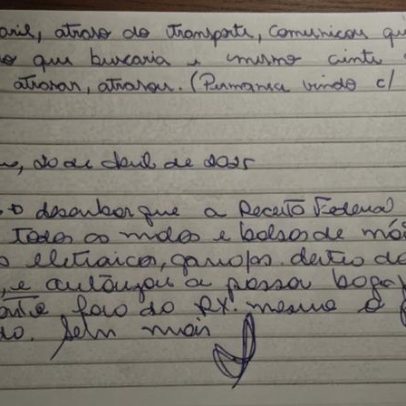 abril, atraso do transporte, comunicou qu
o que buscaria e mesmo cinte
atrasar, atrasou. (Permanece vindo c/
20 de abril de 2025
o desembarque a Receita Federal
todas as malas e bolsos de mã
s eletrônicos, dentro da
e autorizou a passar baga
fora do RX. mesmo o
do. Sem mais